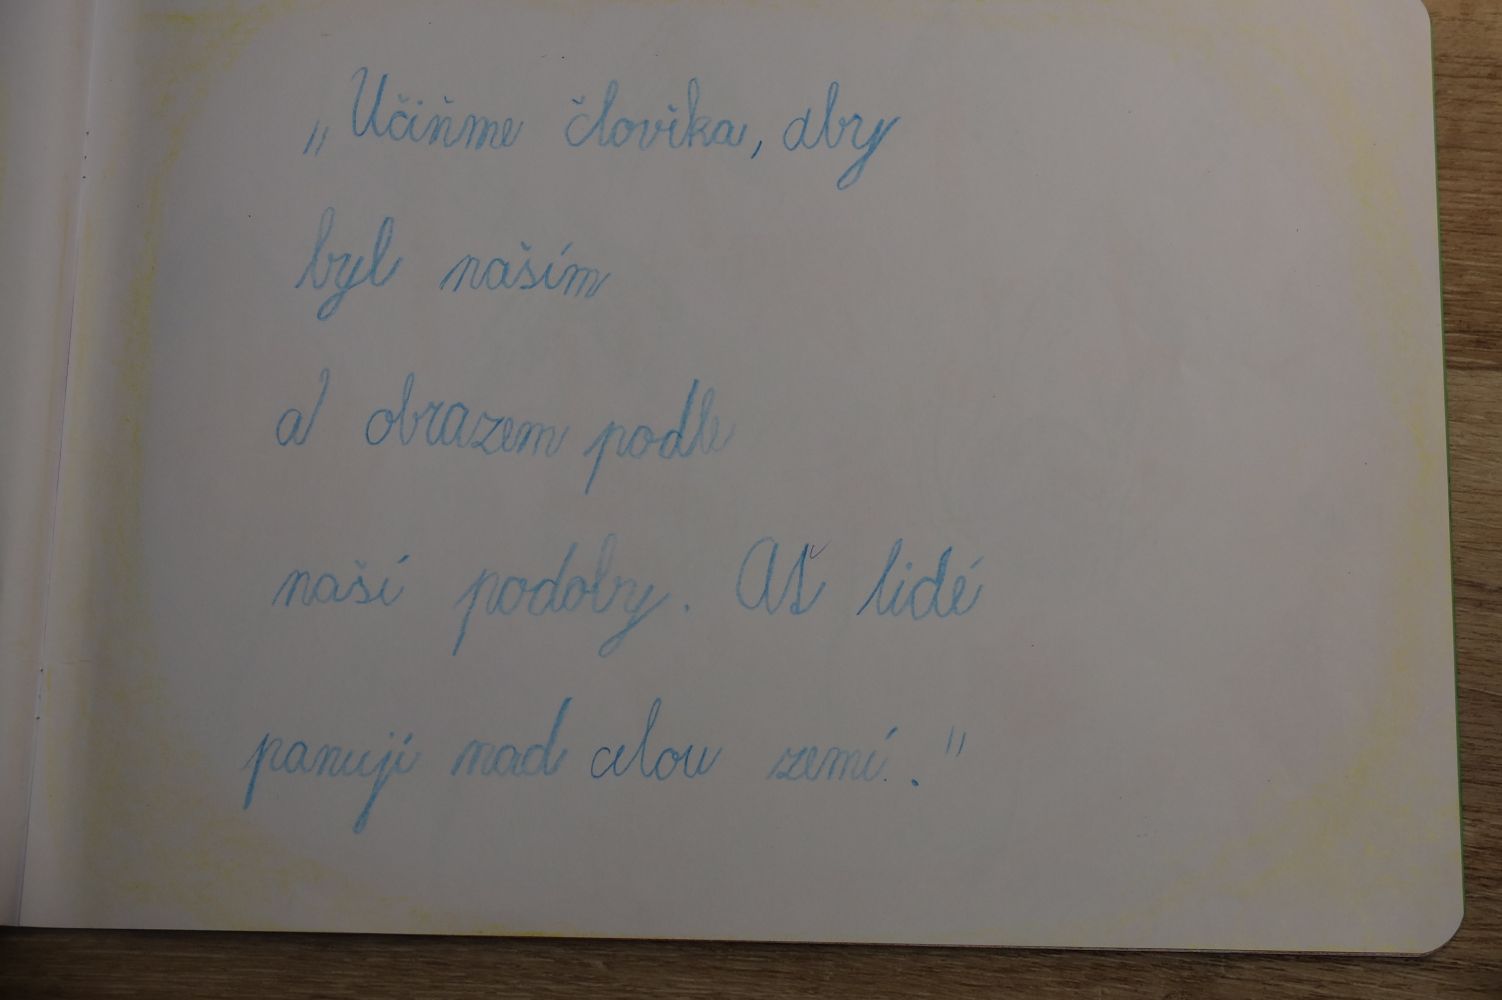 „Učiňme člověka, aby
byl naším
a obrazem podle
naší podoby. Ať lidé
panují nad celou zemí."